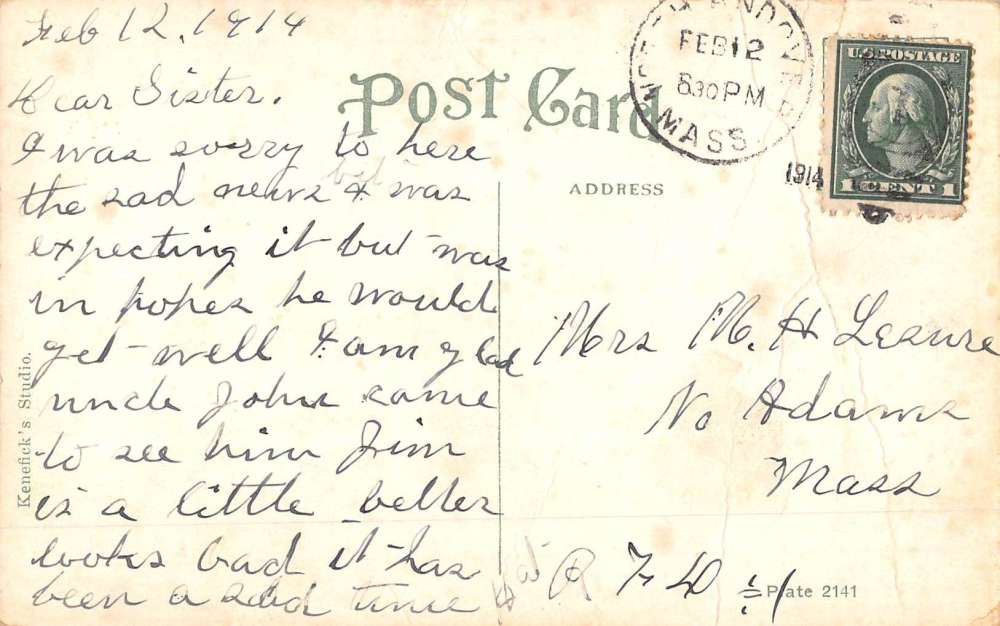 Feb 12, 1914
Dear Sister.
I was sorry to here
the sad news & was
expecting it but was
in hopes he would
get well I am glad
uncle John came
to see him Jim
is a little better
looks bad it has
been a sad time
Kenefick's Studio.
Post Card
ADDRESS
NORTH ANDOVER
FEB 12
8 30 PM
MASS.
1914
U.S. POSTAGE
1 CENT 1
Mrs M. H Lesure
No Adams
Mass
R F D # 1
Plate 2141